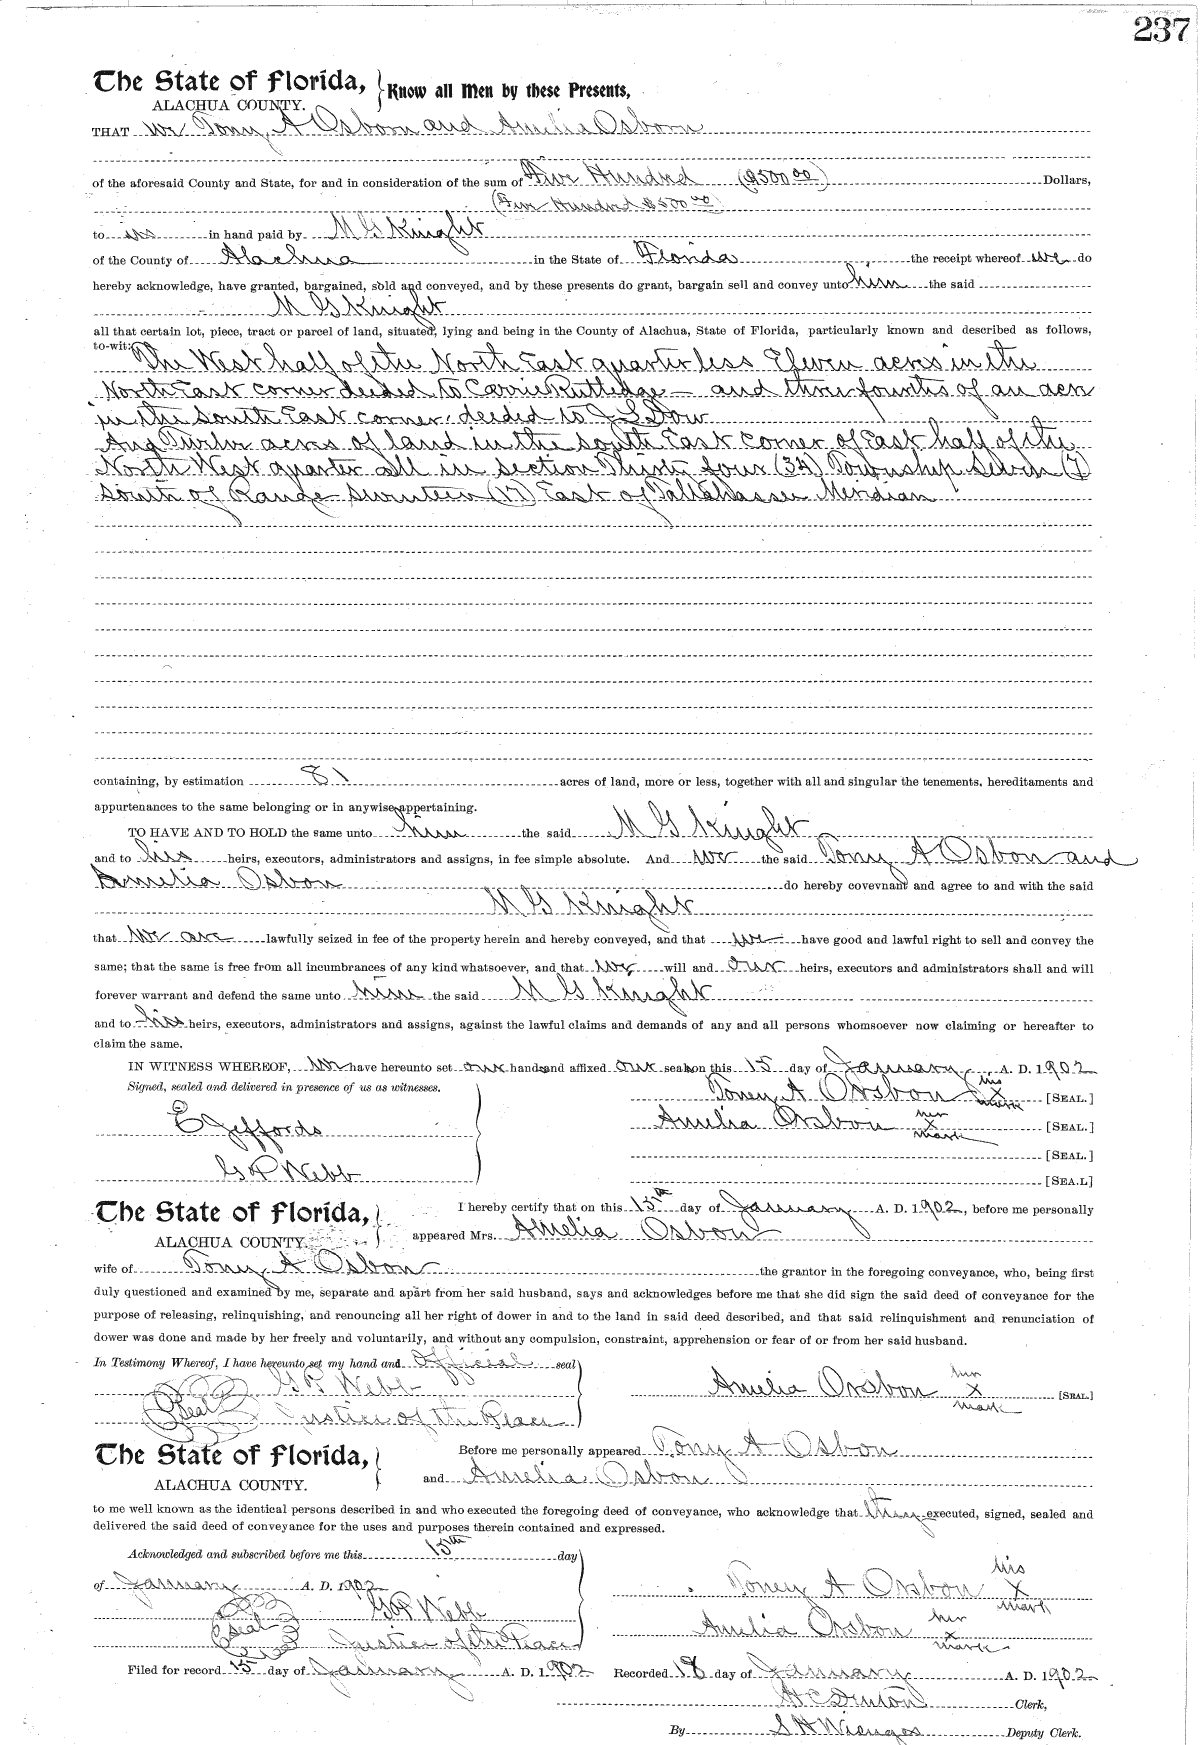 237
The State of Florida, } Know all Men by these Presents,
ALACHUA COUNTY.
THAT we Tony A Osborn and Amelia Osborn
of the aforesaid County and State, for and in consideration of the sum of Five Hundred ($500.00) Dollars,
(Five Hundred $500.00)
to us in hand paid by M G Knight
of the County of Alachua in the State of Florida the receipt whereof we do
hereby acknowledge, have granted, bargained, sold and conveyed, and by these presents do grant, bargain sell and convey unto him the said
M G Knight
all that certain lot, piece, tract or parcel of land, situated, lying and being in the County of Alachua, State of Florida, particularly known and described as follows,
to-wit: The West half of the North East quarter less Eleven acres in the
North East corner deeded to Carrie Rutledge — and three fourths of an acre
in the South East corner deeded to J L Dow
And Twelve acres of land in the South East corner of East half of the
North West quarter all in section Thirty four (34) Township Seven (7)
South of Range Seventeen (17) East of Tallahassee Meridian
containing, by estimation 81 acres of land, more or less, together with all and singular the tenements, hereditaments and
appurtenances to the same belonging or in anywise appertaining.
TO HAVE AND TO HOLD the same unto him the said M G Knight
and to his heirs, executors, administrators and assigns, in fee simple absolute. And we the said Tony A Osbon and
Amelia Osbon do hereby covevnant and agree to and with the said
M G Knight
that we are lawfully seized in fee of the property herein and hereby conveyed, and that we have good and lawful right to sell and convey the
same; that the same is free from all incumbrances of any kind whatsoever, and that we will and our heirs, executors and administrators shall and will
forever warrant and defend the same unto him the said M G Knight
and to his heirs, executors, administrators and assigns, against the lawful claims and demands of any and all persons whomsoever now claiming or hereafter to
claim the same.
IN WITNESS WHEREOF, we have hereunto set our hands and affixed our seals on this 15 day of January A. D. 1902
Signed, sealed and delivered in presence of us as witnesses.
Toney A Orsbon his X mark [SEAL.]
E Jeffords
Amelia Orsbon her X mark [SEAL.]
[SEAL.]
G P Webb
[SEA.L]
The State of Florida, } I hereby certify that on this 15th day of January A. D. 1902, before me personally
ALACHUA COUNTY. appeared Mrs. Amelia Osbon
wife of Tony A Osbon the grantor in the foregoing conveyance, who, being first
duly questioned and examined by me, separate and apart from her said husband, says and acknowledges before me that she did sign the said deed of conveyance for the
purpose of releasing, relinquishing, and renouncing all her right of dower in and to the land in said deed described, and that said relinquishment and renunciation of
dower was done and made by her freely and voluntarily, and without any compulsion, constraint, apprehension or fear of or from her said husband.
In Testimony Whereof, I have hereunto set my hand and official seal
G P Webb Amelia Orsbon her X mark [SEAL.]
Seal Justice of the Peace
The State of Florida, } Before me personally appeared Tony A Osbon
ALACHUA COUNTY. and Amelia Osbon
to me well known as the identical persons described in and who executed the foregoing deed of conveyance, who acknowledge that they executed, signed, sealed and
delivered the said deed of conveyance for the uses and purposes therein contained and expressed.
Acknowledged and subscribed before me this 15th day
of January A. D. 1902 Toney A Orsbon his X mark
G P Webb
Seal Amelia Orsbon her X mark
Justice of the Peace
Filed for record 15 day of January A. D. 1902 Recorded 18 day of January A. D. 1902
H C Denton Clerk,
By S H Wienges Deputy Clerk.